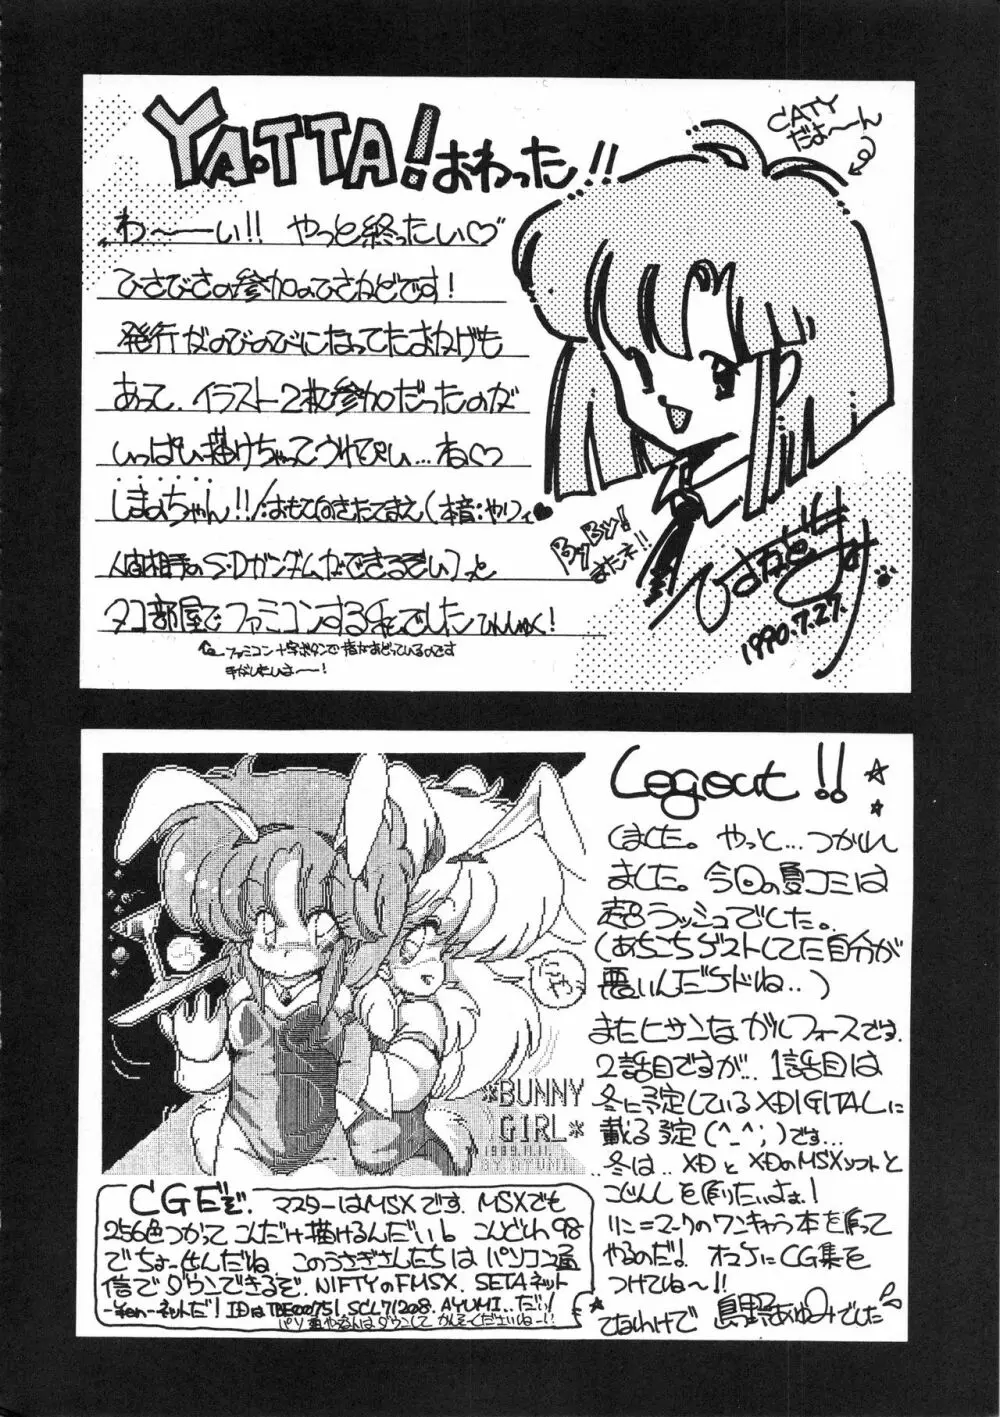 YA・TTA! おわった!!
CATY
だよ〜〜ん
わ〜〜い!! やっと終ったい♡
ひさびさの参加のひさかどです!
発行がのびのびになってたおかげも
あって、イラスト2枚参加だったのが
いっぱい描けちゃってうれぴい…ね♡
しまっちゃん!!
人間相手のS・Dガンダムができるぞい
タコ部屋でファミコンする私でした
ファミコン十字ボタンで
ByBy!
またネ!!
1990.7.27.
Logout!!
しました。やっと…つかれ
ました。今回の夏コミは
超ラッシュでした。
(あちこちゲストしてた自分が
悪いんだケドね‥)
またヒサンなガルフォースです。
2話目ですが… 1話目は
冬に予定しているXDIGITALに
載る予定(^_^;)です…
…冬は、XDとXDのMSXソフトと
こじんしを作りたいよぉ!
リン=マークのワンキャラ本を作って
やるのだ! オマケにCG集を
つけてね〜!!
てなわけで 真野あゆみでした
いやっ
*BUNNY
GIRL*
1989.11.11.
BY.AYUMI
CGだぞ。マスターはMSXです。MSXでも
256色つかって こんだけ描けるんだいb こんどわ98
でちょーせんだね このうさぎさんたちは パソコン通
信で ダウンできるぞ。NIFTYのFMSX. SETAネット
-¥en-ネットだ! IDはTBE00751. SCL71208. AYUMI..だい!